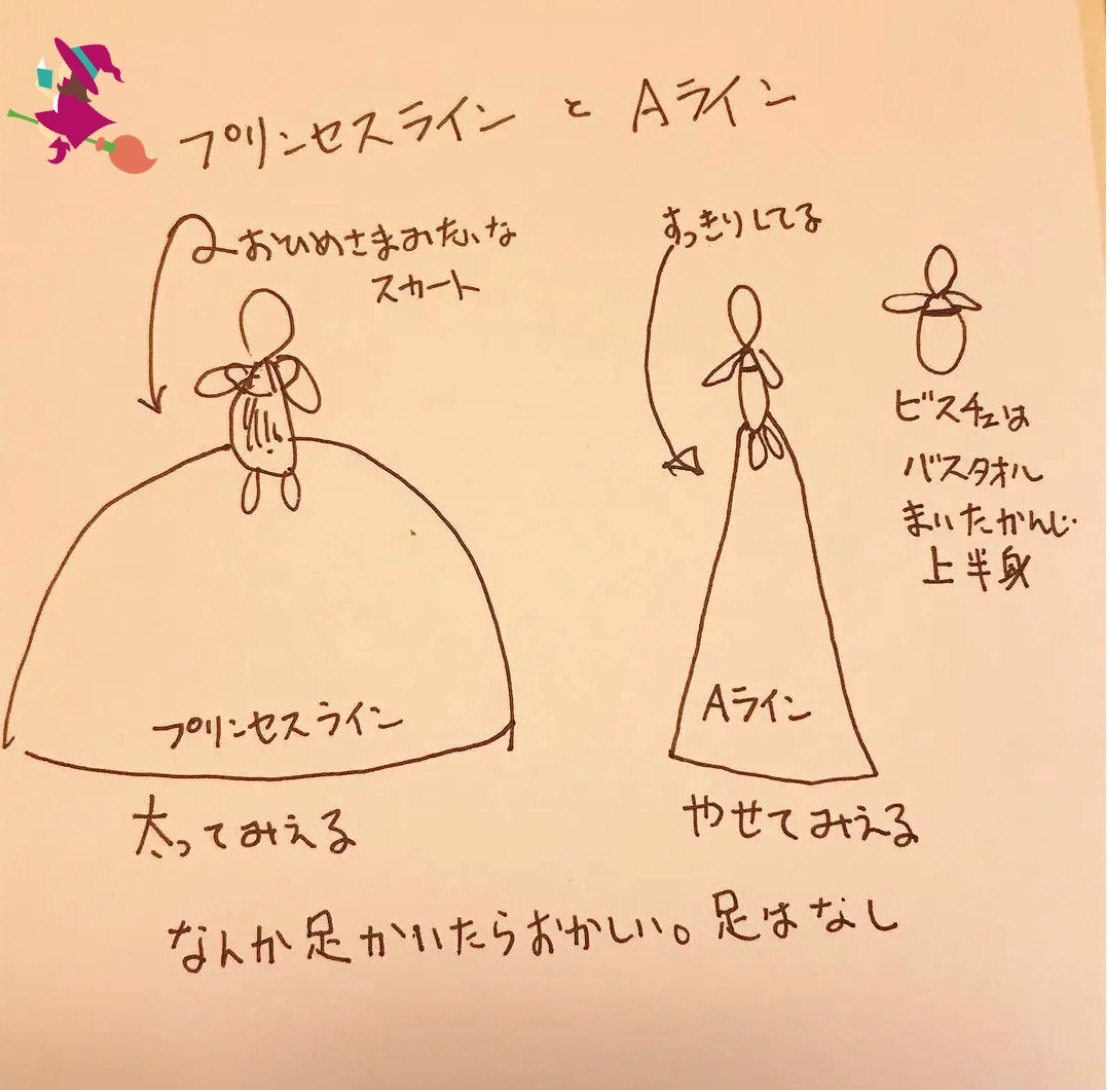 プリンセスライン と Aライン
おひめさまみたいな
スカート
すっきりしてる
ビスチェは
バスタオル
まいたかんじ
上半身
プリンセスライン
Aライン
太ってみえる
やせてみえる
なんか足かいたらおかしい。足はなし